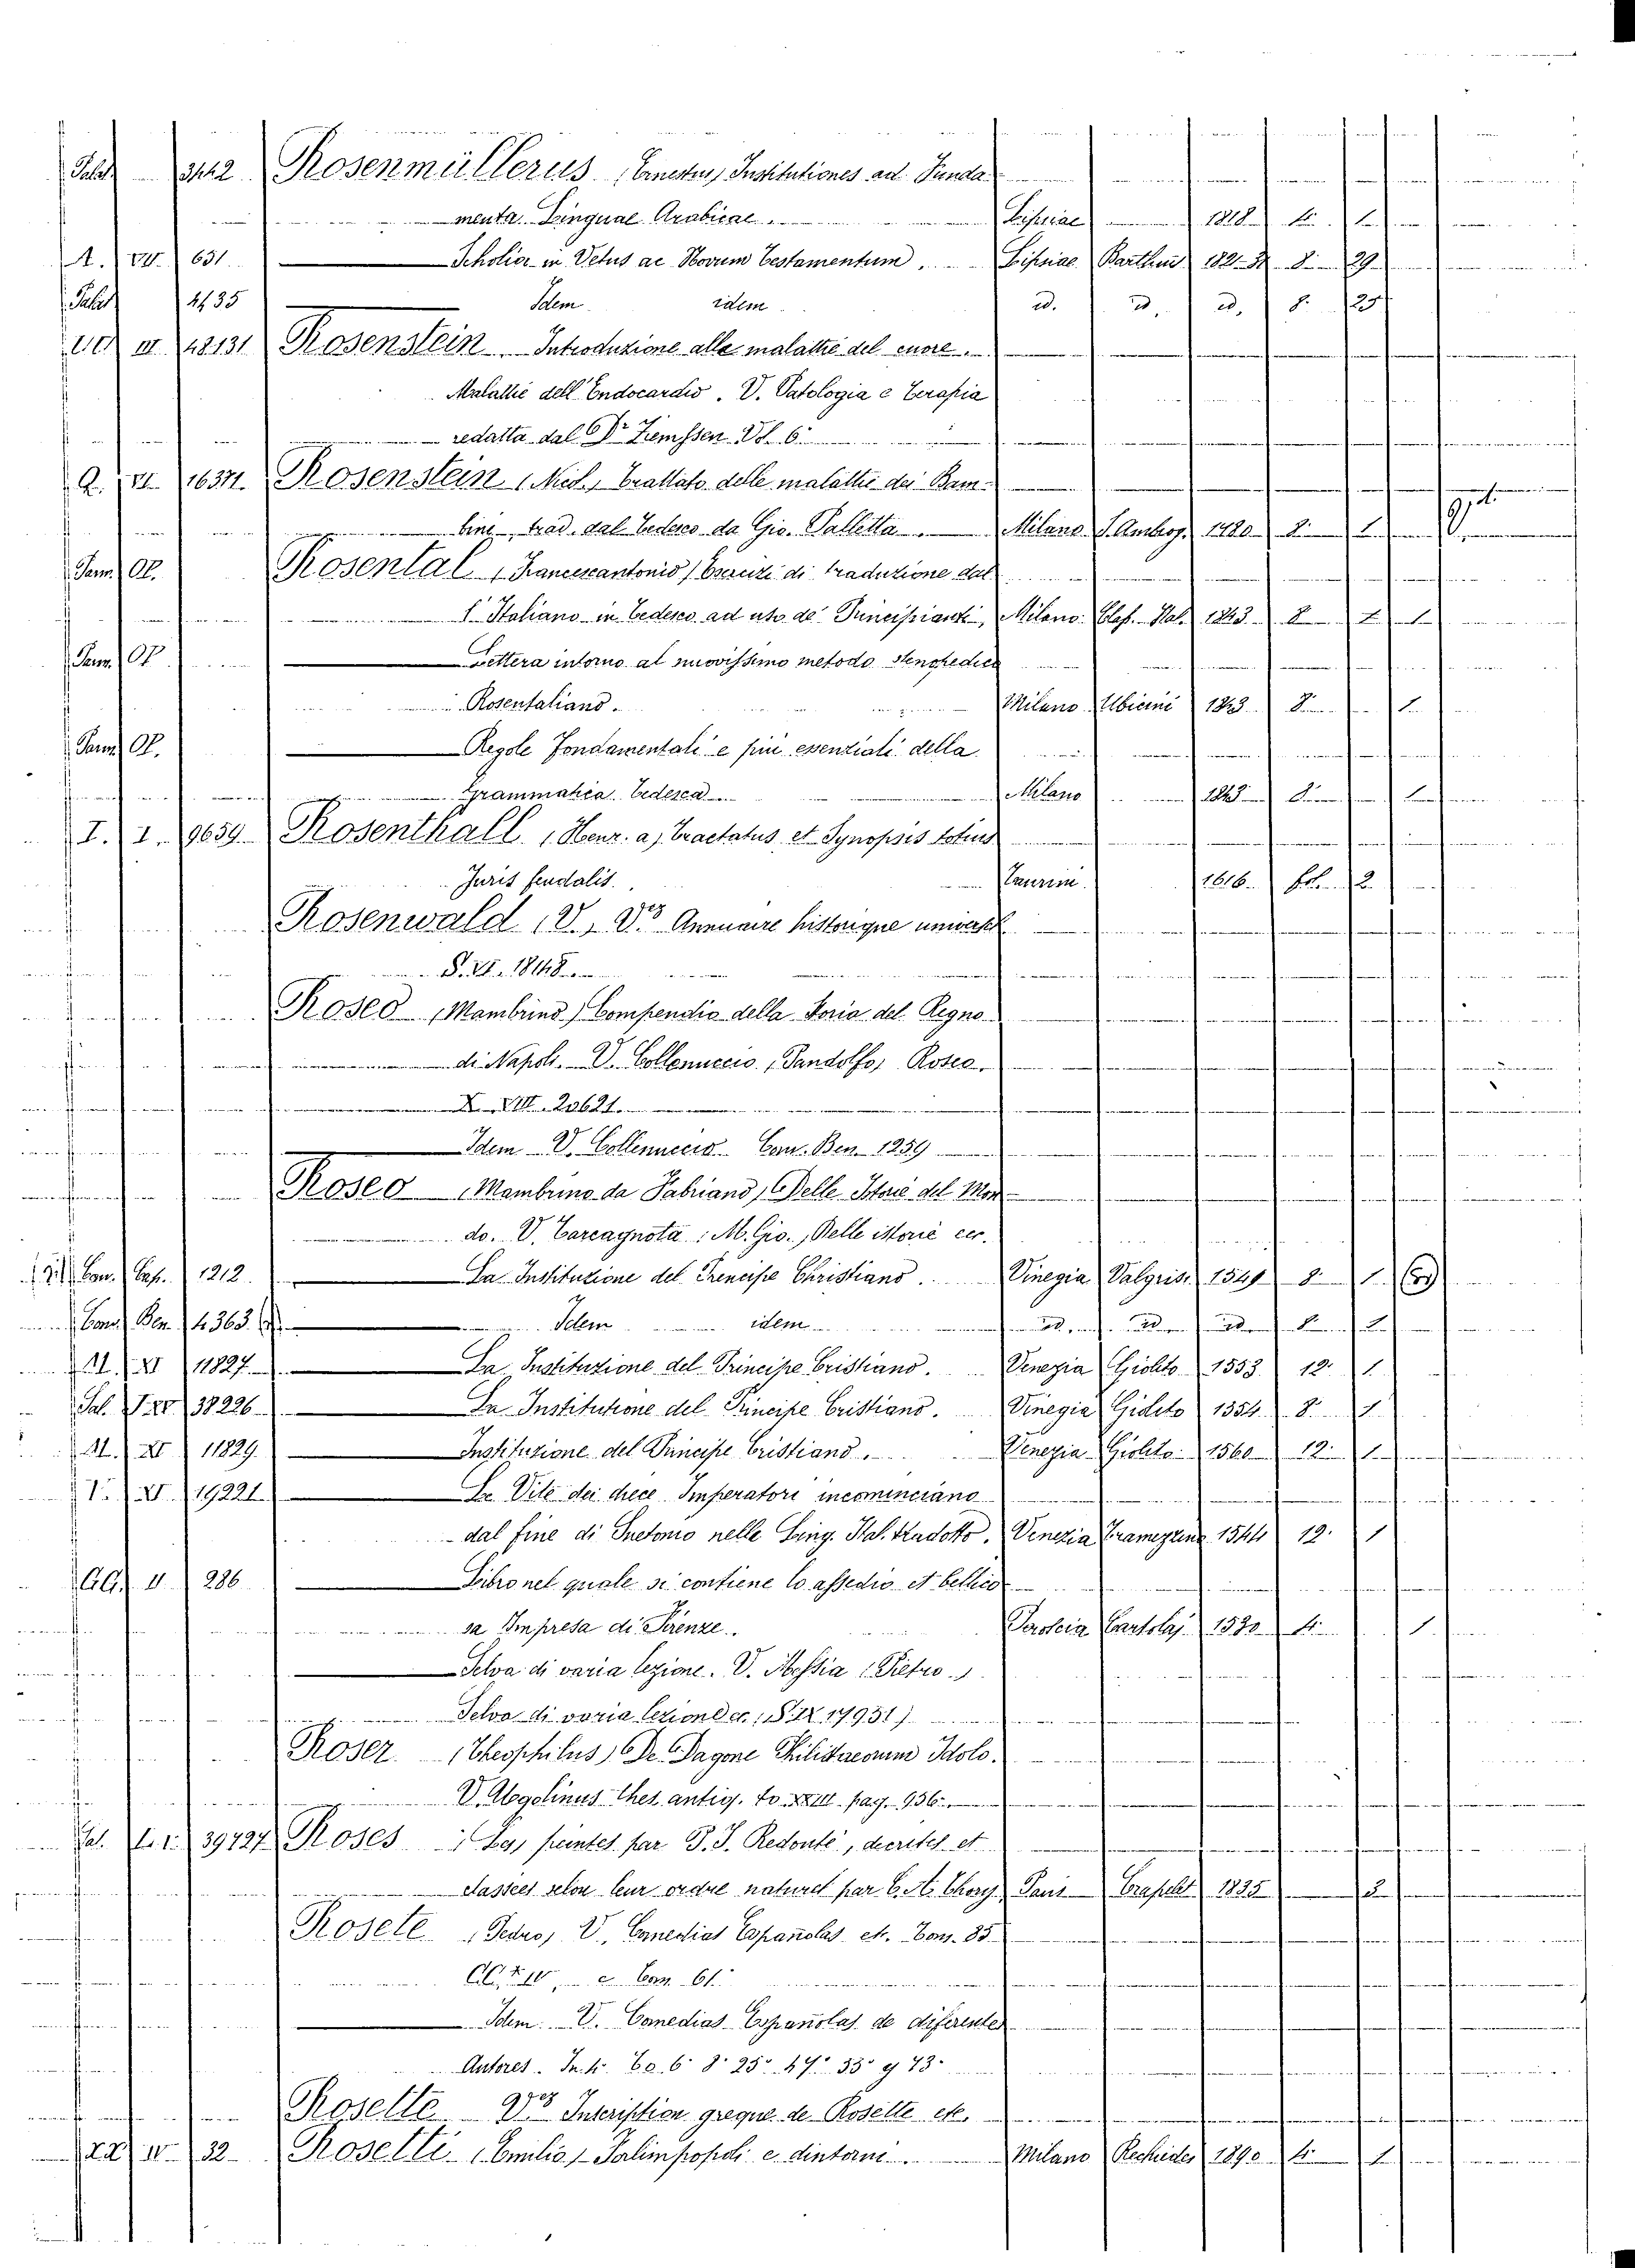 3442 Rosenmüllerus (Ernestus) Institutiones ad Funda
menta Linguae Arabicae. Lipsiae 1818 4. 1
A. VII. 631 Scholia in Vetus ac Novum Testamentum. Lipsiae Barthii 8. 29
4435 Idem idem id. id. id. 8. 25
III 48131 Rosenstein Introduzione alle malattie del cuore.
Malattie dell'Endocardio. V. Patologia e Terapia
redatta dal Dr Ziemssen Vol. 6.
Q. VI. 16371. Rosenstein (Nic.) Trattato delle malattie dei Bam-
bini, trad. dal Tedesco da Gio. Palletta Milano S. Ambrog. 1780 8. 1
Rosental (Francescantonio) Esercizi di traduzione dal
l'Italiano in Tedesco ad uso de' Principianti, Milano Clas. Ital. 1843 8 1
Lettera intorno al nuovissimo metodo
Rosentaliano. Milano Ubicini 1843 8 1
Regole Fondamentali e più essenziali della
Grammatica Tedesca Milano 1843 8. 1
I. I. 9659 Rosenthall (Henr. a) Tractatus et Synopsis totius
Juris feudalis. Taurini 1616. fol. 2
Rosenwald (V.) Vez Annuaire historique universel
S. VI. 1848
Roseo (Mambrino) Compendio della Storia del Regno
di Napoli. V. Collenuccio (Pandolfo) Roseo.
X. VIII. 20621.
Idem V. Collenuccio Con. Ben. 1259
Roseo (Mambrino da Fabriano) Delle Istorie del Mon-
do. V. Tarcagnota (M. Gio.) Delle istorie ecc.
Con. Cap. 1212 La Instituzione del Prencipe Christiano. Vinegia Valgris. 1549 8. 1
Con. Ben. 4363 Idem idem id. id. id. 8. 1
XI 11827 La Instituzione del Principe Cristiano. Venezia Giolito 1553 12. 1
38226 La Institutione del Principe Cristiano. Vinegia Gioleto 1554 8. 1
XI 11829 Instituzione del Principe Cristiano. Venezia Giolito 1560 12. 1
XI. 19221 Le Vite dei diece Imperatori incominciano
dal fine di Suetonio nelle Ling. Ital. tradotto. Venezia Tramezzino 1544 12. 1
II 286 Libro nel quale si contiene lo assedio et bellico
sa Impresa di Firenze. Peroscia Cartolaj 1530 4. 1
Selva di varia lezione. V. Messia (Pietro)
Selva di varia lezione (S. IX 17931)
Roser (Theophilus) De Dagone Philistaeorum Idolo.
V. Ugolinus Thes. antiq. to. XXIII pag. 936.
39727 Roses (Les) peintes par P. J. Redouté, décrites et
classées selon leur ordre naturel par C. A. Thory Paris Crapelet 1835 3
Rosete (Pedro) V. Comedias Españolas etc. Tom. 35
CC. IV. e Tom. 61.
Idem V. Comedias Españolas de diferentes
Autores. In 4. To. 6. 8. 25. 47. 33. y 43.
Rosette Vez Inscription greque de Rosette etc.
IV 32 Rosetti (Emilio) Forlimpopoli e dintorni. Milano Rechiedei 1890 4. 1